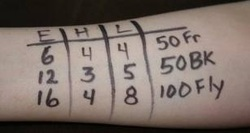 E H L
6 4 4 50Fr
12 3 5 50BK
16 4 8 100Fly